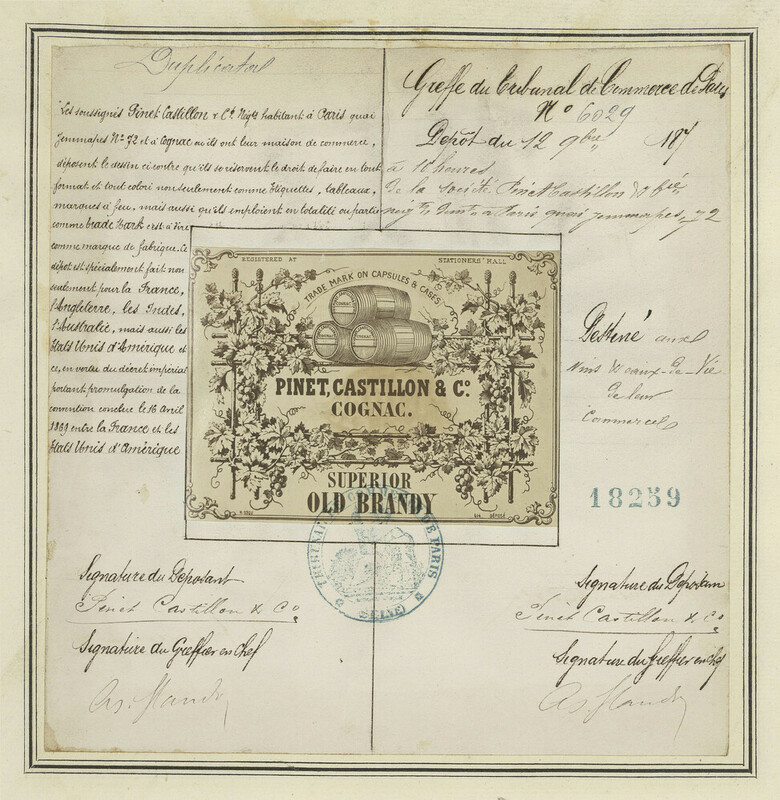 Duplicata
Les soussignés Pinet Castillon & Cie Négts habitant à Paris quai
Jemmapes No 72 et à Cognac où ils ont leur maison de commerce,
déposent le dessin ci contre qu'ils se réservent le droit de faire en tout
format et tout colori non seulement comme Etiquettes, tableaux,
marques à feu, mais aussi qu'ils emploient en totalité ou partie
comme trade Mark c'est à dire
comme marque de fabrique. Ce
dépôt est spécialement fait non
seulement pour la France,
l'Angleterre, les Indes,
l'Australie, mais aussi les
Etats Unis d'Amérique et
ce, en vertu du décret impérial
portant promulgation de la
convention conclue le 16 Avril
1869 entre la France et les
Etats Unis d'Amérique
Greffe du Tribunal de Commerce de Paris
No 6029
Dépôt du 12 9bre 187
à 11 heures
de la société Pinet Castillon & Cie
négts à Paris quai Jemmapes, 72
Destiné aux
vins & eaux-de-Vie
de leur
Commerce
18259
REGISTERED AT
STATIONERS' HALL
TRADE MARK ON CAPSULES & CASES
COGNAC
PINET, CASTILLON & Co.
COGNAC.
SUPERIOR
OLD BRANDY
DÉPOSÉ
TRIBUNAL DE COMMERCE DE PARIS
(SEINE)
Signature du Déposant
Pinet Castillon & Co
Signature du Greffier en Chef
Signature du Déposant
Pinet Castillon & Co
Signature du Greffier en Chef